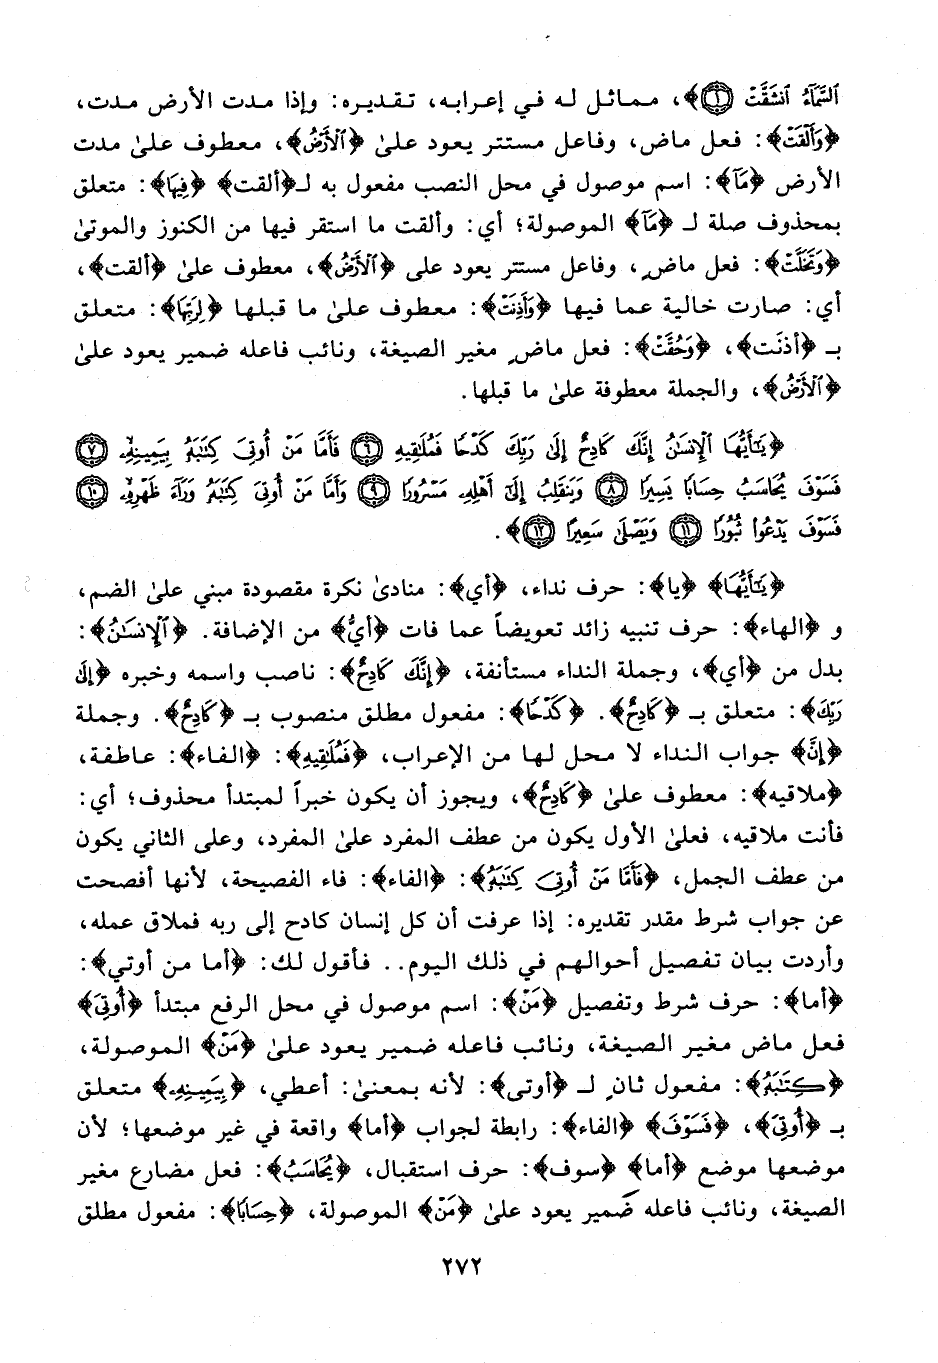 ٱلسَّمَآءُ ٱنشَقَّتْ ١﴾، مماثل له في إعرابه، تقديره: وإذا مدت الأرض مدت،
﴿وَأَلْقَتْ﴾: فعل ماض، وفاعل مستتر يعود علىٰ ﴿ٱلْأَرْضُ﴾، معطوف علىٰ مدت
الأرض ﴿مَا﴾: اسم موصول في محل النصب مفعول به لـ﴿ألقت﴾ ﴿فِيهَا﴾: متعلق
بمحذوف صلة لـ ﴿مَا﴾ الموصولة؛ أي: وألقت ما استقر فيها من الكنوز والموتىٰ
﴿وَتَخَلَّتْ﴾: فعل ماضٍ، وفاعل مستتر يعود على ﴿ٱلْأَرْضُ﴾، معطوف علىٰ ﴿ألقت﴾،
أي: صارت خالية عما فيها ﴿وَأَذِنَتْ﴾: معطوف علىٰ ما قبلها ﴿لِرَبِّهَا﴾: متعلق
بـ ﴿أذنَت﴾، ﴿وَحُقَّتْ﴾: فعل ماضٍ مغير الصيغة، ونائب فاعله ضمير يعود علىٰ
﴿ٱلْأَرْضُ﴾، والجملة معطوفة علىٰ ما قبلها.
﴿يَٰٓأَيُّهَا ٱلْإِنسَٰنُ إِنَّكَ كَادِحٌ إِلَىٰ رَبِّكَ كَدْحًا فَمُلَٰقِيهِ ٦ فَأَمَّا مَنْ أُوتِىَ كِتَٰبَهُۥ بِيَمِينِهِۦ ٧
فَسَوْفَ يُحَاسَبُ حِسَابًا يَسِيرًا ٨ وَيَنقَلِبُ إِلَىٰٓ أَهْلِهِۦ مَسْرُورًا ٩ وَأَمَّا مَنْ أُوتِىَ كِتَٰبَهُۥ وَرَآءَ ظَهْرِهِۦ ١٠
فَسَوْفَ يَدْعُوا۟ ثُبُورًا ١١ وَيَصْلَىٰ سَعِيرًا ١٢﴾.
﴿يَٰٓأَيُّهَا﴾ ﴿يا﴾: حرف نداء، ﴿أي﴾: منادىٰ نكرة مقصودة مبني علىٰ الضم،
و ﴿الهاء﴾: حرف تنبيه زائد تعويضاً عما فات ﴿أيُّ﴾ من الإضافة. ﴿ٱلْإِنسَٰنُ﴾:
بدل من ﴿أي﴾، وجملة النداء مستأنفة، ﴿إِنَّكَ كَادِحٌ﴾: ناصب واسمه وخبره ﴿إِلَىٰ
رَبِّكَ﴾: متعلق بـ ﴿كَادِحٌ﴾. ﴿كَدْحًا﴾: مفعول مطلق منصوب بـ ﴿كَادِحٌ﴾. وجملة
﴿إِنَّ﴾ جواب النداء لا محل لها من الإعراب، ﴿فَمُلَٰقِيهِ﴾: ﴿الفاء﴾: عاطفة،
﴿ملاقيه﴾: معطوف علىٰ ﴿كَادِحٌ﴾، ويجوز أن يكون خبراً لمبتدأ محذوف؛ أي:
فأنت ملاقيه، فعلىٰ الأول يكون من عطف المفرد علىٰ المفرد، وعلى الثاني يكون
من عطف الجمل، ﴿فَأَمَّا مَنْ أُوتِىَ كِتَٰبَهُۥ﴾: ﴿الفاء﴾: فاء الفصيحة، لأنها أفصحت
عن جواب شرط مقدر تقديره: إذا عرفت أن كل إنسان كادح إلى ربه فملاق عمله،
وأردت بيان تفصيل أحوالهم في ذلك اليوم.. فأقول لك: ﴿أما من أوتي﴾:
﴿أما﴾: حرف شرط وتفصيل ﴿مَنْ﴾: اسم موصول في محل الرفع مبتدأ ﴿أُوتِىَ﴾
فعل ماض مغير الصيغة، ونائب فاعله ضمير يعود علىٰ ﴿مَنْ﴾ الموصولة،
﴿كِتَٰبَهُۥ﴾: مفعول ثانٍ لـ ﴿أوتى﴾: لأنه بمعنىٰ: أعطي، ﴿بِيَمِينِهِۦ﴾ متعلق
بـ ﴿أُوتِىَ﴾، ﴿فَسَوْفَ﴾ ﴿الفاء﴾: رابطة لجواب ﴿أما﴾ واقعة في غير موضعها؛ لأن
موضعها موضع ﴿أما﴾ ﴿سوف﴾: حرف استقبال، ﴿يُحَاسَبُ﴾: فعل مضارع مغير
الصيغة، ونائب فاعله ضمير يعود علىٰ ﴿مَنْ﴾ الموصولة، ﴿حِسَابًا﴾: مفعول مطلق
٢٧٢